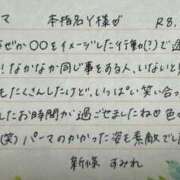 マ 本指名Y様♡ R8.
ぜか〇〇をイメージした行動(?)で過
!なかなか同じ事ある人、いないと
もたくさんしたけど、いっぱい笑っ
したお時間が過ごせましたね😊色
(笑)パーマのかかった姿も素敵でし
新條 すみれ